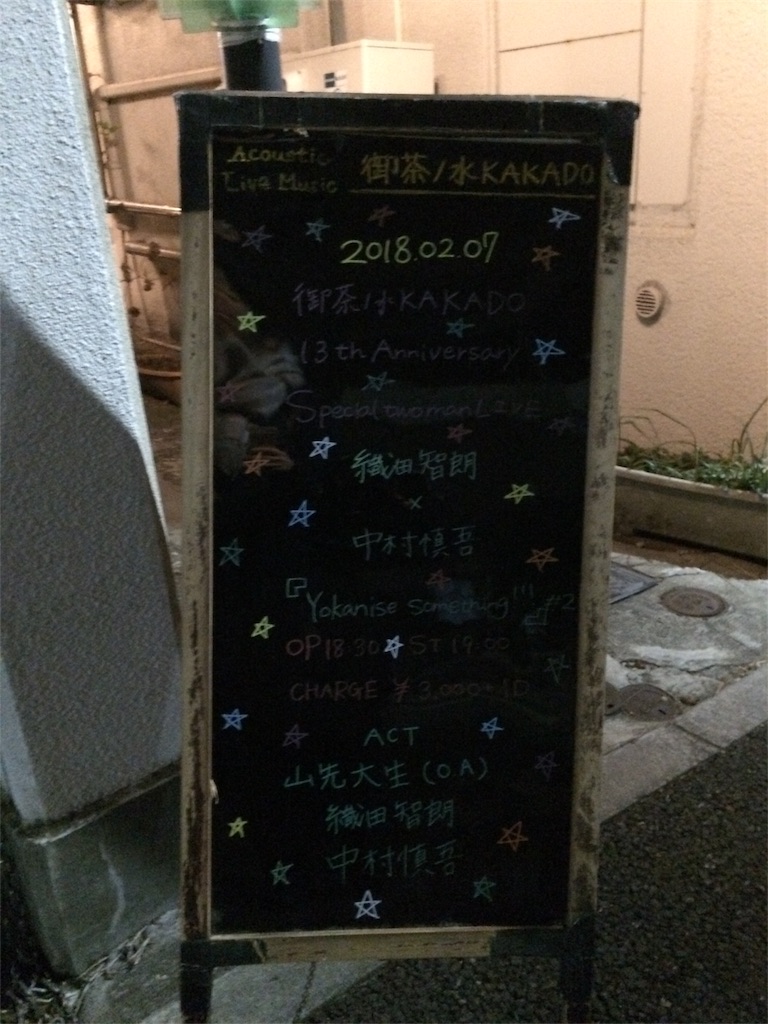 Acoustic
Live Music
御茶ノ水KAKADO
2018.02.07
御茶ノ水KAKADO
13th Anniversary
Special twoman LIVE
織田智朗
×
中村慎吾
『Yokanise something!!!』#2
OP18:30☆ST19:00
CHARGE ¥3,000+1D
ACT
山先大生(O.A)
織田智朗
中村慎吾